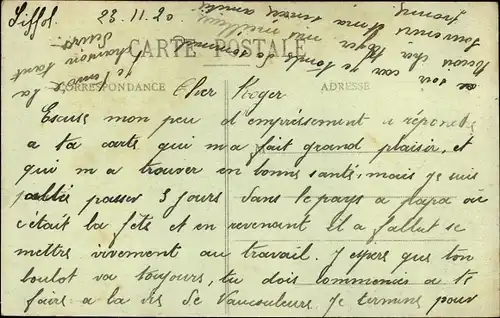 Liffol. 23.11.20
CARTE POSTALE
CORRESPONDANCE ADRESSE
Cher Roger
Escuse mon peu d'empréssement a réponde
a ta carte qui m'a fait grand plaisir, et
qui m'a trouver en bonne santé, mais je suis
allé passer 3 jours dans le pays a papa ou
c'était la fête et en revenant il a fallut se
mettre vivement au travail. J'espère que ton
boulot va toujours, tu dois commencer a te
faire a la vie de Vaucouleurs. Je termine pour
ce soir car je tombe de sommeil
Reçois cher Roger mes meilleurs
souvenirs